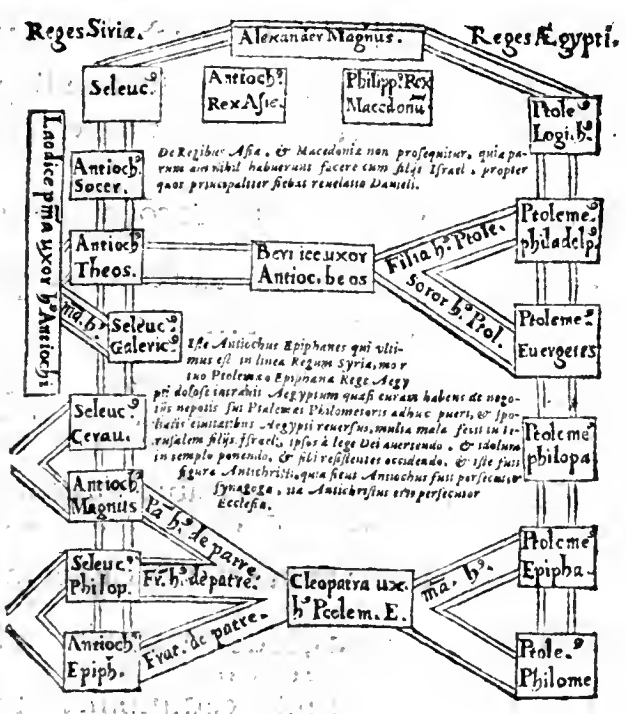 Reges Siriæ.
Alexander Magnus.
Reges Ægypti.
Seleuc⁹
Antioch⁹
Rex Asie.
Philipp⁹ Rex
Macedonū
Ptole⁹
Logi. h⁹
Laodice pm̄a uxor h⁹ Antiochi
De Regibus Asia, & Macedoniæ non prosequitur, quia pa-
rum aut nihil habuerunt facere cum filijs Israel, propter
quos principaliter fiebat reuelatio Danieli.
Antioch⁹
Socer.
Ptoleme⁹
philadelp⁹
Antioch⁹
Theos.
Berniceuxor
Antioc. beos
Filia h⁹ Ptole.
Soror h⁹ Ptol.
ma. h⁹
Seleuc⁹
Galeric⁹
Ptoleme⁹
Euergetes
Iste Antiochus Epiphanes qui vlti-
mus est in linea Regum Syria, mor
tuo Ptolemæo Epiphana Rege Aegy
pti dolose intrauit Aegyptum quasi curam habens de nego-
tiis nepotis sui Ptolemæi Philometoris adhuc pueri, & spo-
liatis ciuitatibus Aegypti reuersus, multa mala fecit in Ie-
rusalem filijs Israel, ipsos à lege Dei auertendo, & idolum
in templo ponendo, & sibi resistentes occidendo, & iste fuit
figura Antichristi, quia sicut Antiochus fuit persecutor
synagoga, ita Antichristus erit persecutor
Ecclesia.
Seleuc⁹
Cerau.
Ptoleme⁹
philopa
Antioch⁹
Magnus
Pa. h⁹ de patre.
Seleuc⁹
Philop.
Fr. h⁹ de patre.
Cleopatra ux.
h⁹ Ptolem. E.
ma. h⁹
Ptoleme⁹
Epipha.
Antioch⁹
Epiph.
Frat. de patre.
Ptole.⁹
Philome